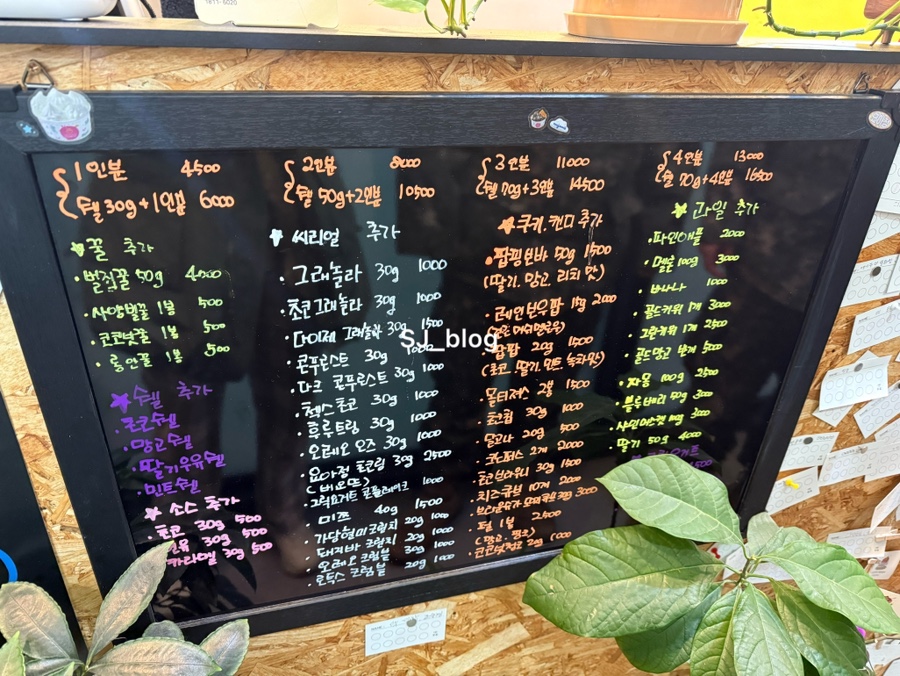 1811-5020
1인분 4500
쉘 30g+1인분 6000
꿀 추가
벌집꿀 50g 4000
사양벌꿀 1봉 500
코코넛꿀 1봉 500
롱안꿀 1봉 500
쉘 추가
초코쉘
망고쉘
딸기우유쉘
민트쉘
소스 추가
초코 30g 500
30g 500
카라멜 30g 500
2인분 8000
쉘 50g+2인분 10500
씨리얼 추가
그래놀라 30g 1000
초코그래놀라 30g 1000
다이제 그래놀라 30g 1500
콘푸로스트 30g 1000
다크 콘푸로스트 30g 1000
첵스초코 30g 1000
후루트링 30g 1000
오레오 오즈 30g 1000
요아정 초코링 30g 2500
그릭요거트 콘플레이크 1000
미쯔 40g 1500
가당현미크런치 20g 1000
돼지바 크런치 20g 1000
오레오 크럼블 30g 1000
로투스 크럼블 20g 1000
3인분 11000
쉘 70g+3인분 14500
쿠키.캔디 추가
팝핑보바 50g 1500
(딸기, 망고, 리치 맛)
레인보우팝 15g 2000
팝팝 20g 1500
(초코, 딸기, 민트, 녹차맛)
몰티져스 2봉 1500
초코링 30g 1000
20g 500
로쉐 2개 2000
초코브라우니 30g 1500
치즈큐브 10개 2000
30g 3000
1봉 2500
코코넛청크 20g 1000
4인분 13000
쉘 70g+4인분 16500
과일 추가
파인애플 2000
메론 100g 3000
바나나 1000
골드키위 1개 3000
그린키위 1개 2500
골드망고 반개 5000
자몽 100g 2500
블루베리 50g 3000
샤인머스켓 3000
딸기 50g 4000
그릭요거트
1500
SJ_blog